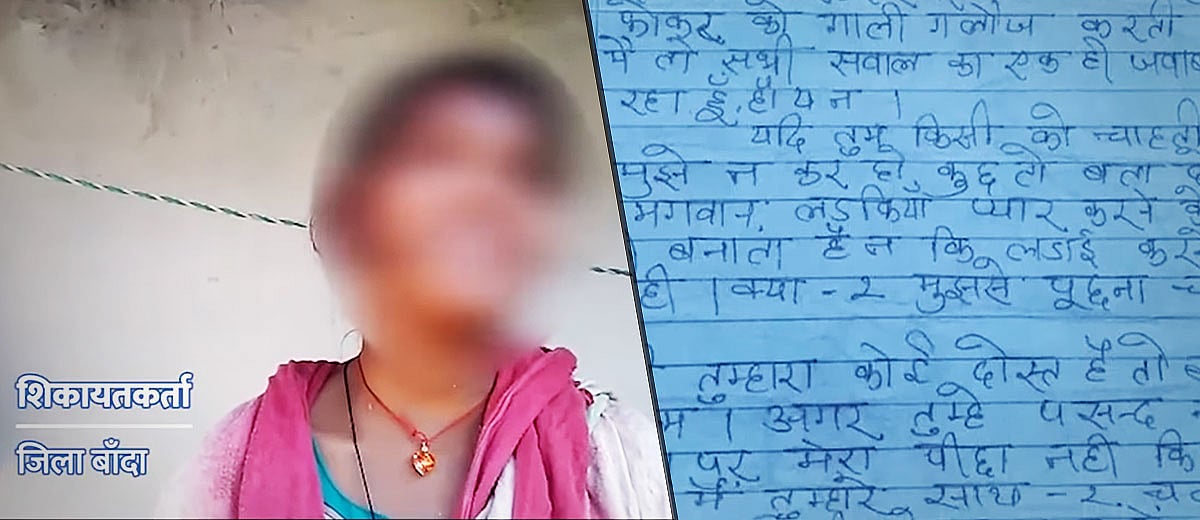 शिकायतकर्ता
जिला बाँदा
को गाली गलौज करती
सभी सवाल का एक ही जवाब
रहा हूँ, हाँ य न ।
यदि तुम किसी को चाहती
मुझे न कर हो कुछ तो बता
भगवान, लडकियाँ प्यार करने
बनाता है न कि लडाई करने
ही । क्या - २ मुझसे पूछना
तुम्हारा कोई दोस्त है तो
। अगर तुम्हे पसन्द
पर मेरा पीछा नही
मै तुम्हारे साथ - २